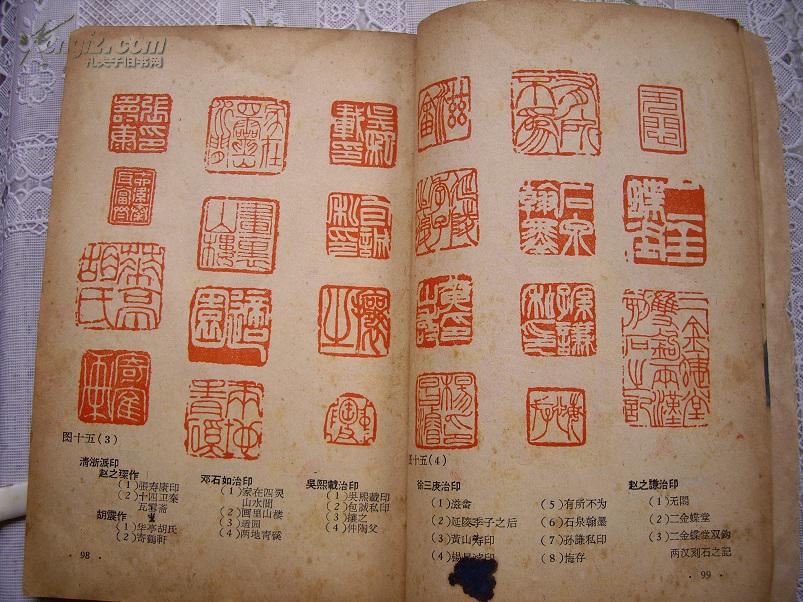 Kongfz.com
孔夫子旧书网
图十五(3)
清浙派印
赵之琛作
(1)張寿康印
(2)十四卫秦
瓦當斋
胡震作
(1)华亭胡氏
(2)寄鶴軒
邓石如治印
(1)家在四灵
山水間
(2)画里山楼
(3)遁园
(4)两地青谿
吳熙載治印
(1)吳熙載印
(2)包誠私印
(3)攘之
(4)仲陶父
98
十五(4)
徐三庚治印
(1)滋畬
(2)延陵季子之后
(3)黃山寿印
(4)楊
(5)有所不为
(6)石泉翰墨
(7)孙谦私印
(8)悔存
赵之謙治印
(1)无悶
(2)二金蝶堂
(3)二金蝶堂双鈎
两汉刻石之記
99